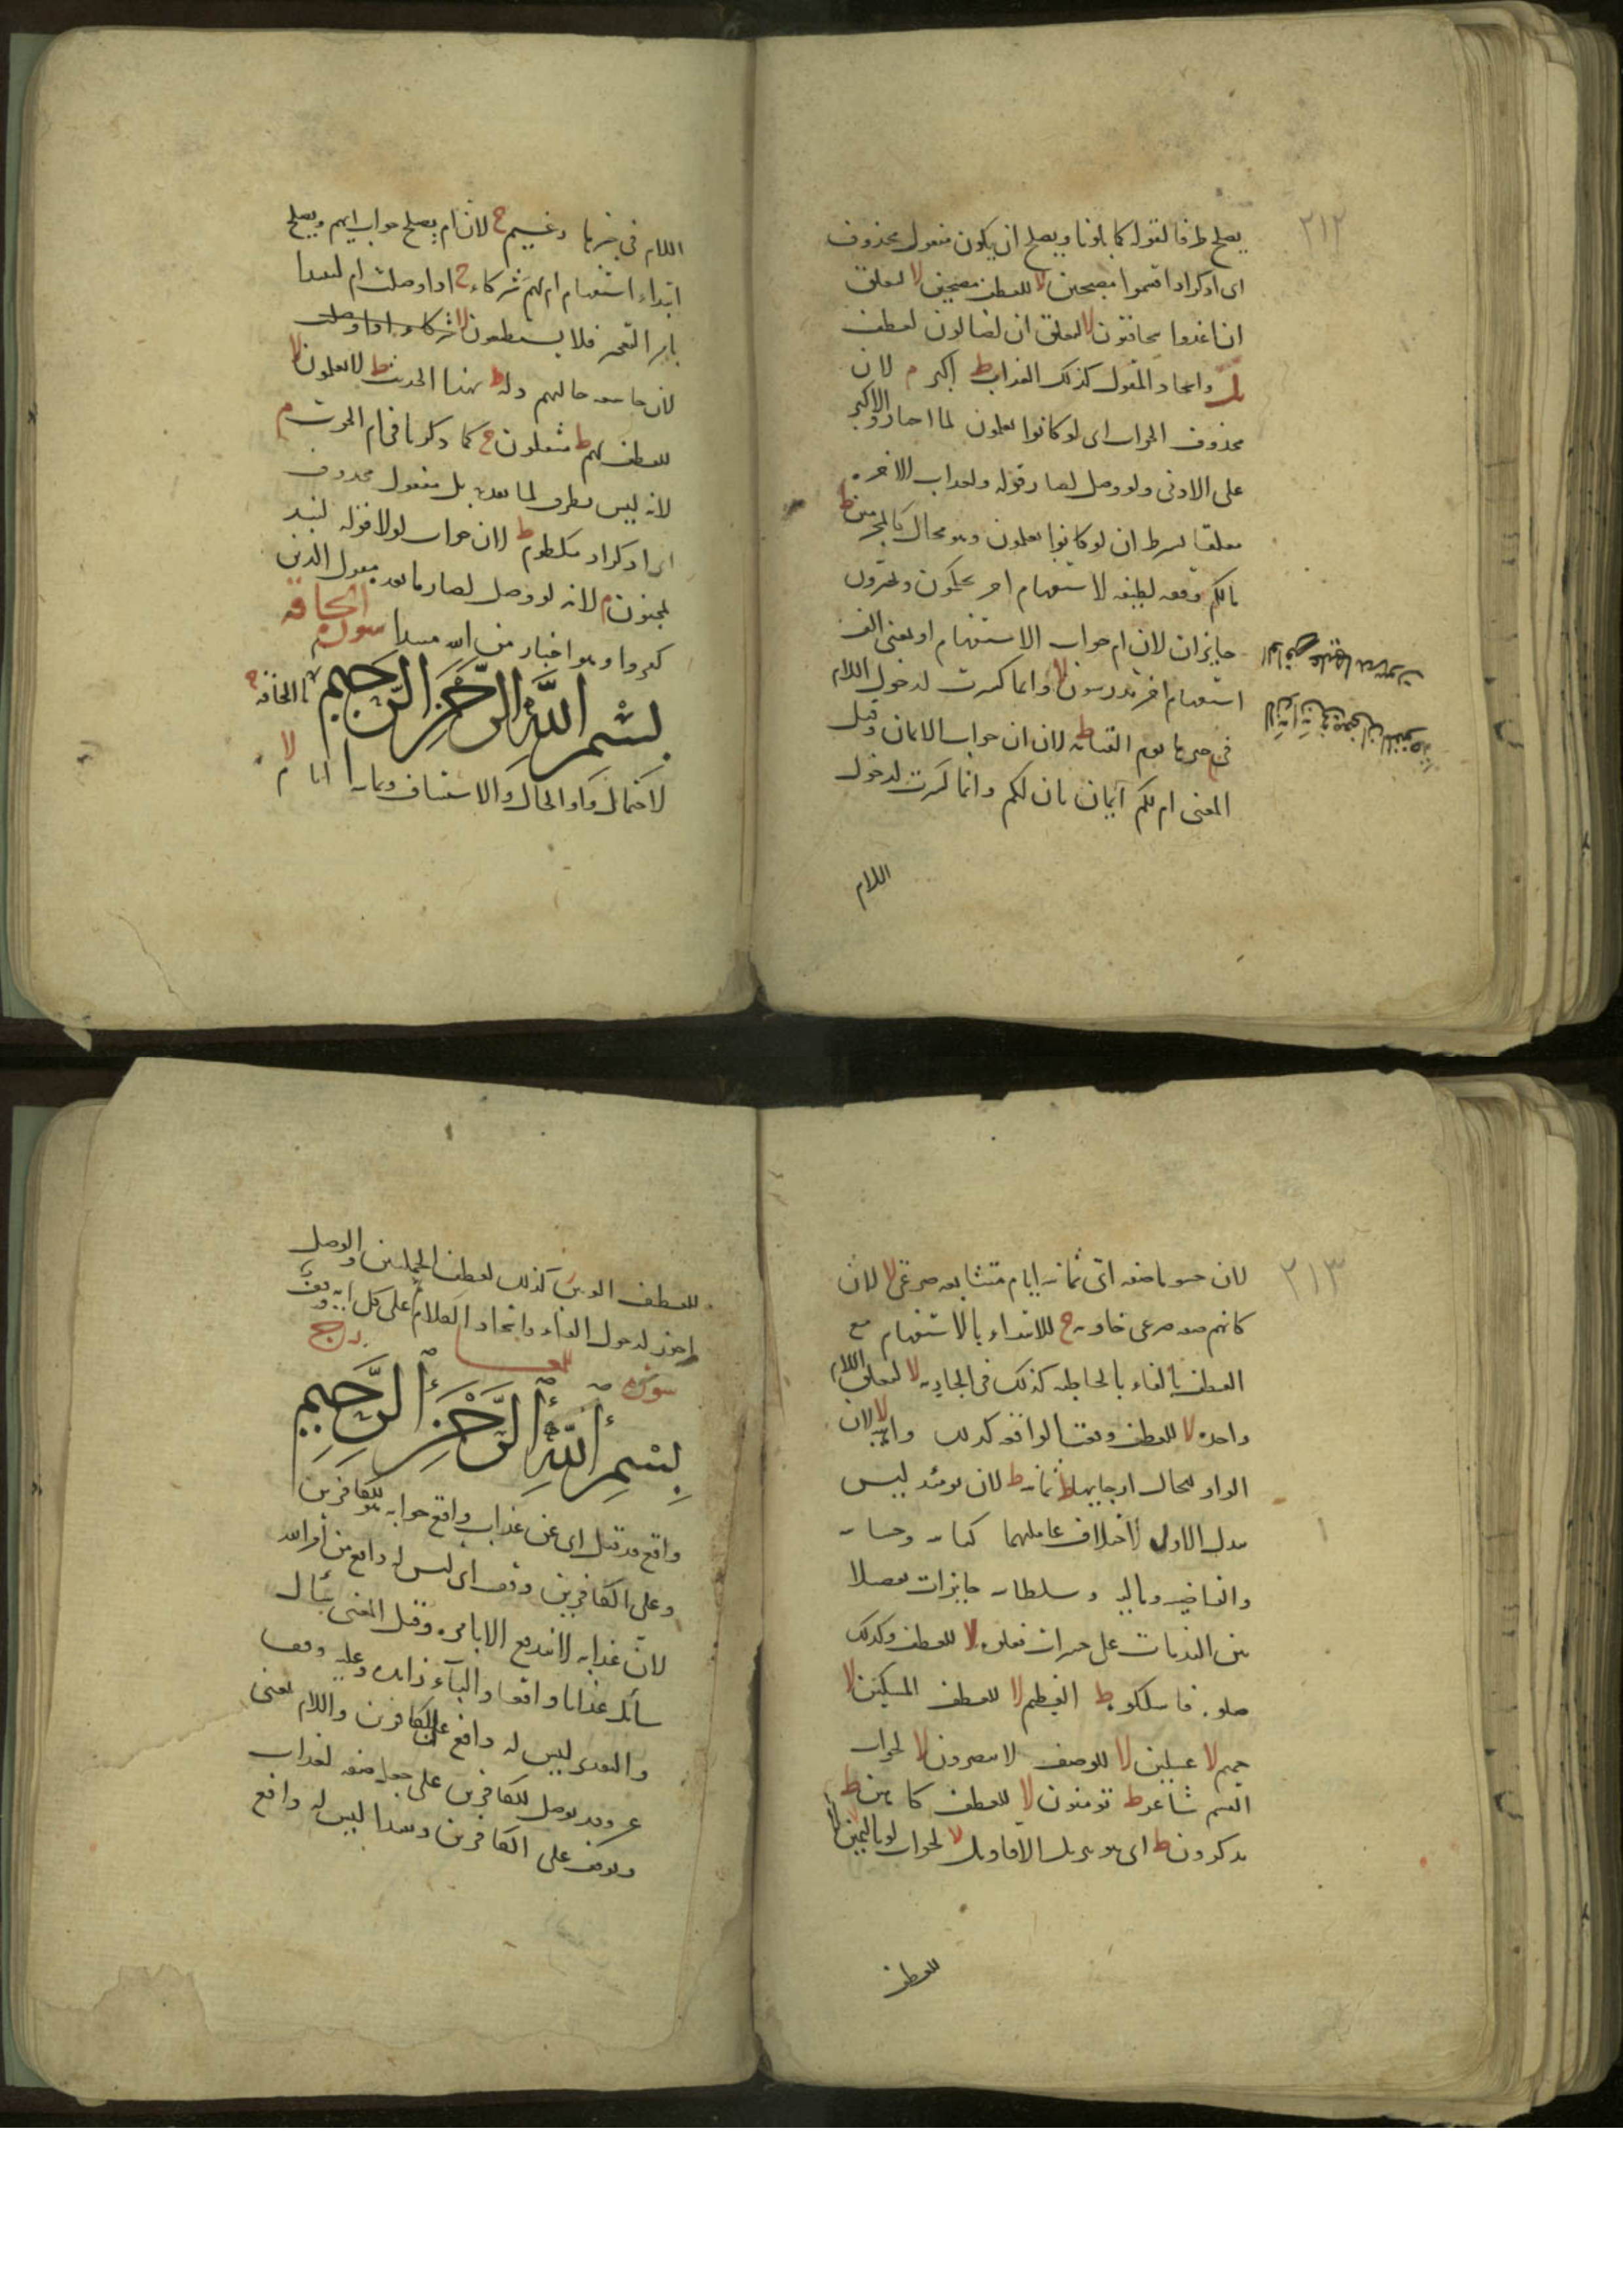 ٢١٢
يصلح ظرفا لقوله كما بلونا ويصلح ان يكون مفعول محذوف
اى اذكر اذ اقسموا مصبحين لا للعطف مصبحين لا لتعلق
ان اغدوا يتخافتون لا لتعلق ان لضالون لعطف
بل واتحاد المقول كذلك العذاب ط اكبر م لان
محذوف الجواب اى لو كانوا يعلمون لما اختاروا الاكبر
على الادنى ولو وصل لصار قوله ولعذاب الاخرة
معلقا بشرط ان لو كانوا يعلمون وهو محال كالمجرمين ط
مالكم وقفه لطيفه لاستفهام اخر تحكمون وتخيرون
جايزان لان ام جواب الاستفهام او بمعنى الف
استفهام اخر تدرسون لا وانما كسرت لدخول اللام
فى خبرها يوم القيامة ط لان ان جواب الايمان وقيل
المعنى ام لكم ايمان بان لكم وانما كسرت لدخول
اللام
اللام فى خبرها زعيم ج لان ام يصلح جواب ايهم ويصلح
ابتداء استفهام ام لهم شركاء ج اذا وصلت ام لهم
فلا يستطيعون لا شركاء اذا وصلت
لان خاشعة حالهم ذلة ط بهذا الحديث ط لا يعلمون لا
للعطف لهم ط مثقلون ج كما ذكرنا فى ام الحوت م
لانه ليس بظرف لما بعده بل مفعول محذوف
اى اذكر اذ مكظوم ط لان جواب لولا قوله لنبذ
لمجنون م لانه لو وصل لصار ما بعده مقول الذين
كفروا وهو اخبار من الله مبتدا سورة الحاقة
بسم الله الرحمن الرحيم ما الحاقة ج
لاحتمال واو الحال والاستيناف وثمانية ايام لا
٢١٣
لان حسوما صفه اى ثمانيه ايام متتابعه صرعى لا لان
كانهم صفه صرعى خاويه ج للابتداء بالاستفهام مع
العطف بالفاء بالخاطئه كذلك فى الجاريه لا لتعلق اللام
واحده لا للعطف وقعت الواقعه كذلك واهيه لا لان
الواو للحال ارجايها ط ثمانيه ط لان يومئذ ليس
بدل الاول لاختلاف عاملهما كتابيه وحسابيه
والقاضيه وماليه وسلطانيه جايزات تفصيلا
بين الندمات على حسرات فغلوه لا للعطف وكذلك
صلوه فاسلكوه ط العظيم لا للعطف المسكين لا
حميم لا غسلين لا للوصف لا تبصرون لا لجواب
القسم شاعر ط تومنون لا للعطف كاهن ط
تذكرون ط اى هو تنزيل الاقاويل لا لجواب لو باليمين لا
للعطف
للعطف الوتين كذلك لعطف الجملتين والوصل
اجوز لدخول الفاء واتحاد الكلام على كل ايه وقف
سورة المعارج
بسم الله الرحمن الرحيم
واقع قد قيل اى عن عذاب واقع جوابه للكافرين
وعلى الكافرين وقف اى ليس له دافع من امر الله
لان عذابه لا يندفع الا بامره وقيل المعنى سأل
سائل عذابا واقعا والباء زايده وعليه وقف
والتقدير ليس له دافع على الكافرين واللام بمعنى
عن وقد يوصل للكافرين على جعله صفه لعذاب
ويوقف على الكافرين ويبتدا ليس له دافع